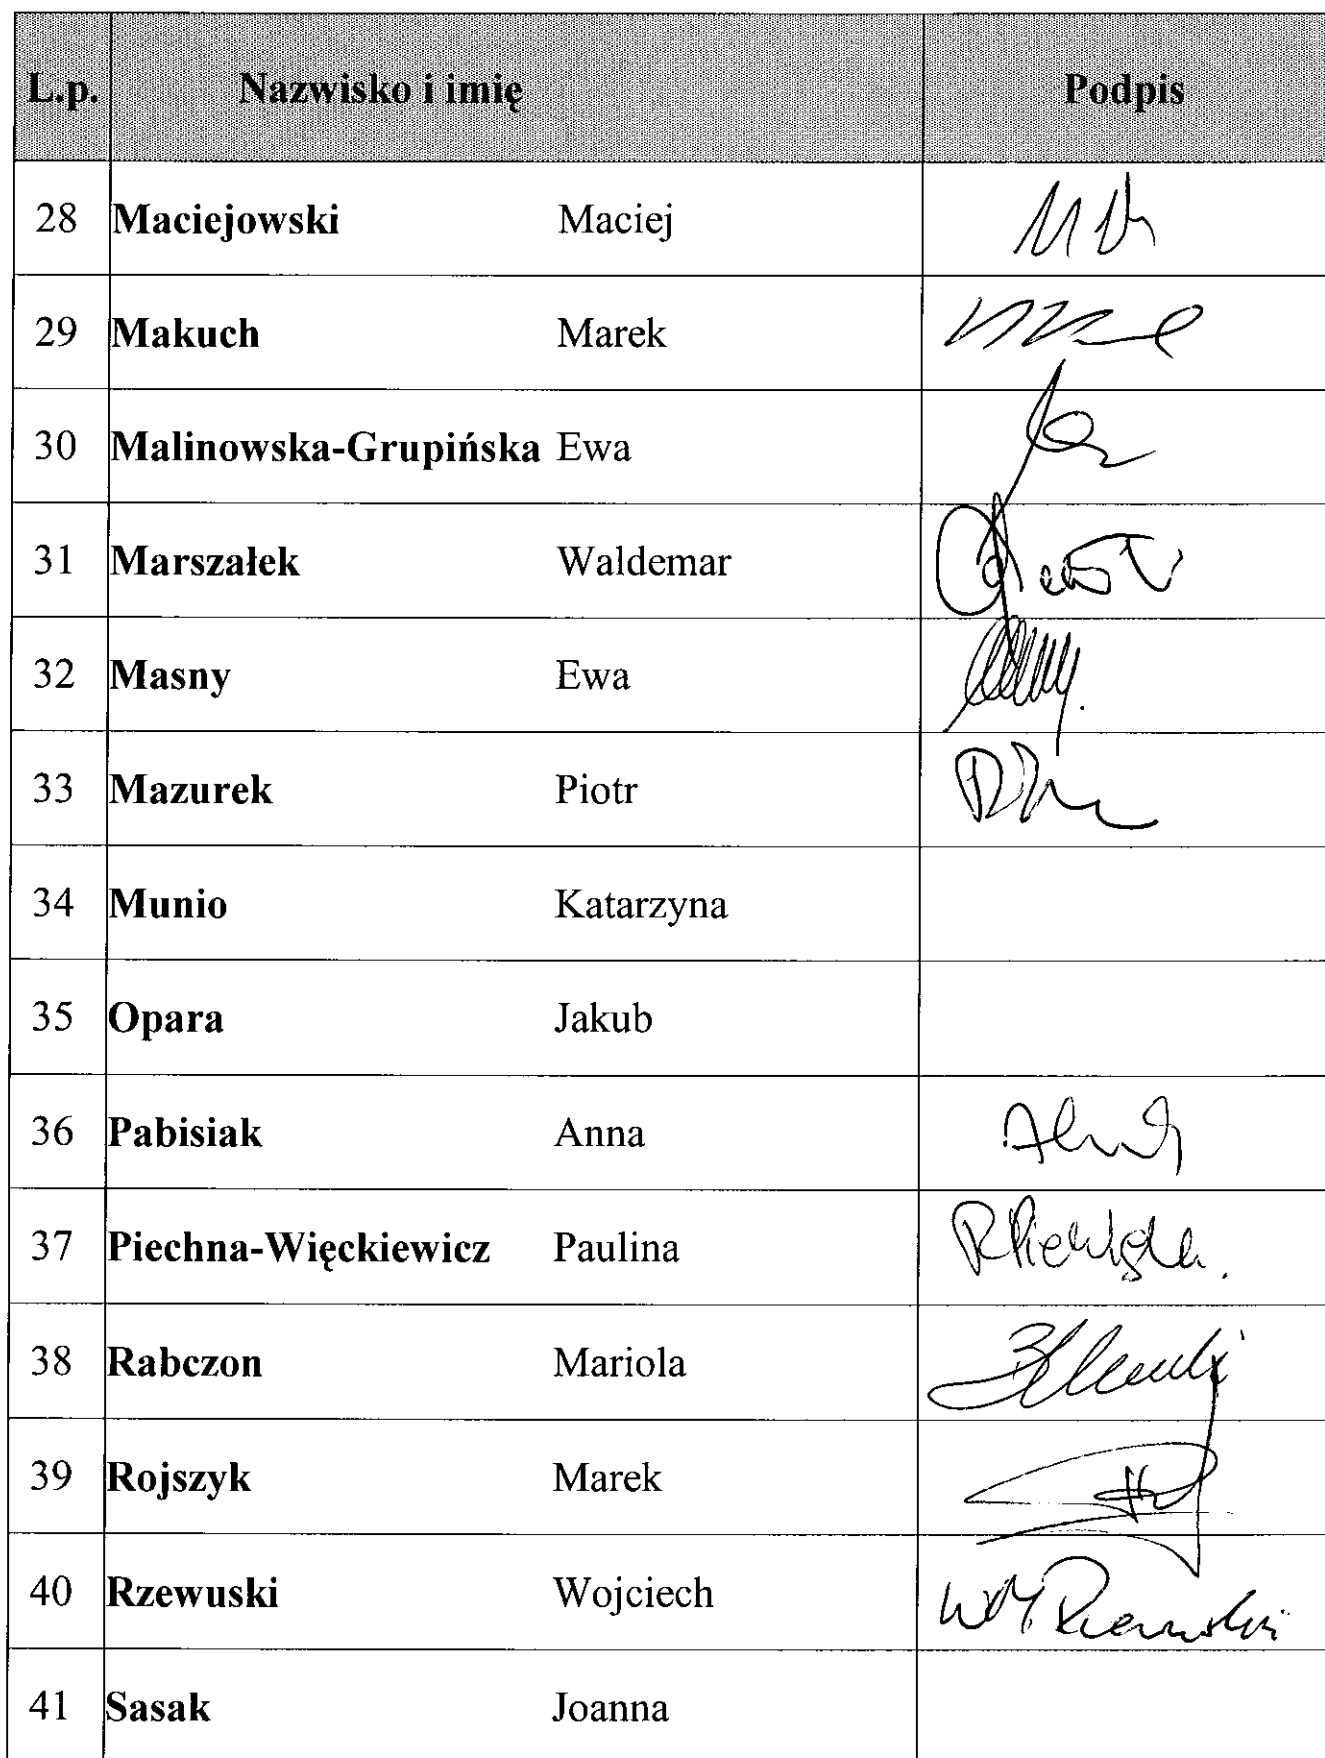 L.p. Nazwisko i imię Podpis
28 Maciejowski Maciej
29 Makuch Marek
30 Malinowska-Grupińska Ewa
31 Marszałek Waldemar
32 Masny Ewa
33 Mazurek Piotr
34 Munio Katarzyna
35 Opara Jakub
36 Pabisiak Anna
37 Piechna-Więckiewicz Paulina
38 Rabczon Mariola
39 Rojszyk Marek
40 Rzewuski Wojciech
41 Sasak Joanna